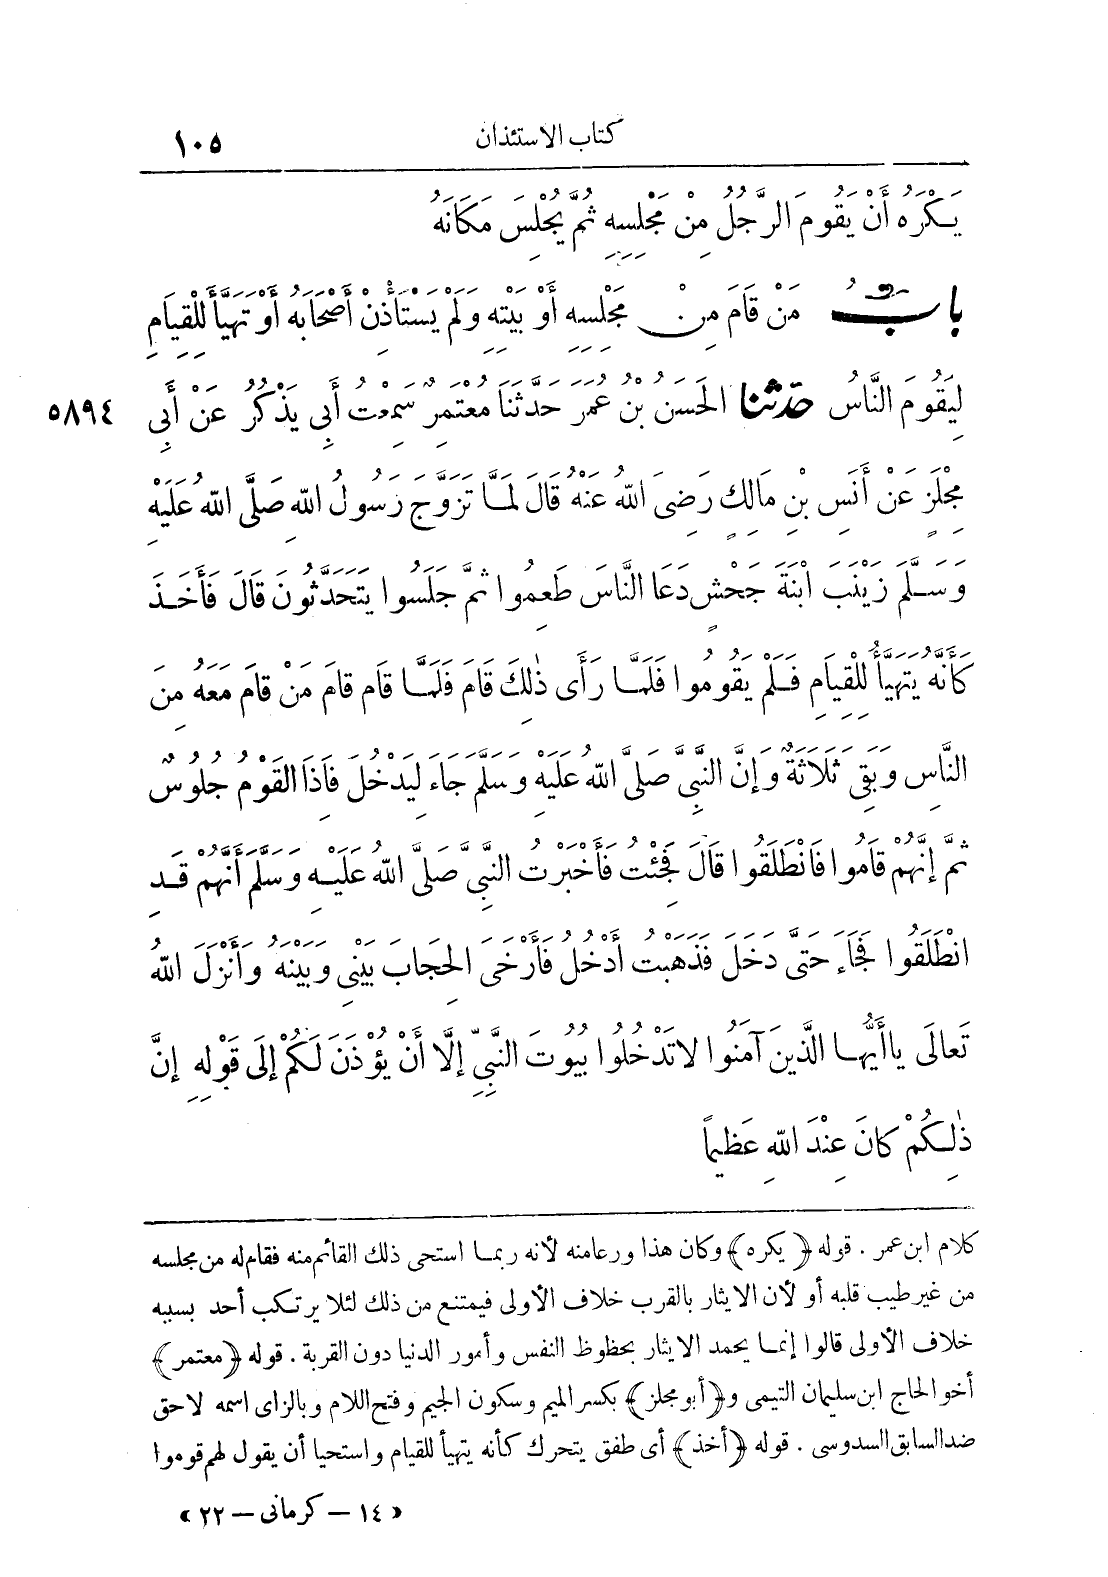 كتاب الاستئذان ١٠٥
يَكْرَهُ أَنْ يَقُومَ الرَّجُلُ مِنْ مَجْلِسِهِ ثُمَّ يُجْلِسَ مَكَانَهُ
بابُ مَنْ قَامَ مِنْ مَجْلِسِهِ أَوْ بَيْتِهِ وَلَمْ يَسْتَأْذِنْ أَصْحَابَهُ أَوْ تَهَيَّأَ لِلْقِيَامِ
لِيَقُومَ النَّاسُ حدثنا الْحَسَنُ بْنُ عُمَرَ حَدَّثَنَا مُعْتَمِرٌ سَمِعْتُ أَبِي يَذْكُرُ عَنْ أَبِي ٥٨٩٤
مِجْلَزٍ عَنْ أَنَسِ بْنِ مَالِكٍ رَضِيَ اللهُ عَنْهُ قَالَ لَمَّا تَزَوَّجَ رَسُولُ اللهِ صَلَّى اللهُ عَلَيْهِ
وَسَلَّمَ زَيْنَبَ ابْنَةَ جَحْشٍ دَعَا النَّاسَ طَعِمُوا ثُمَّ جَلَسُوا يَتَحَدَّثُونَ قَالَ فَأَخَذَ
كَأَنَّهُ يَتَهَيَّأُ لِلْقِيَامِ فَلَمْ يَقُومُوا فَلَمَّا رَأَى ذٰلِكَ قَامَ فَلَمَّا قَامَ قَامَ مَنْ قَامَ مَعَهُ مِنَ
النَّاسِ وَبَقِيَ ثَلَاثَةٌ وَإِنَّ النَّبِيَّ صَلَّى اللهُ عَلَيْهِ وَسَلَّمَ جَاءَ لِيَدْخُلَ فَإِذَا الْقَوْمُ جُلُوسٌ
ثُمَّ إِنَّهُمْ قَامُوا فَانْطَلَقُوا قَالَ فَجِئْتُ فَأَخْبَرْتُ النَّبِيَّ صَلَّى اللهُ عَلَيْهِ وَسَلَّمَ أَنَّهُمْ قَدِ
انْطَلَقُوا فَجَاءَ حَتَّى دَخَلَ فَذَهَبْتُ أَدْخُلُ فَأَرْخَى الْحِجَابَ بَيْنِي وَبَيْنَهُ وَأَنْزَلَ اللهُ
تَعَالَى يَاأَيُّهَا الَّذِينَ آمَنُوا لَا تَدْخُلُوا بُيُوتَ النَّبِيِّ إِلَّا أَنْ يُؤْذَنَ لَكُمْ إِلَى قَوْلِهِ إِنَّ
ذٰلِكُمْ كَانَ عِنْدَ اللهِ عَظِيمًا
كلام ابن عمر . قوله ﴿يكره﴾ وكان هذا ورعا منه لأنه ربما استحى ذلك القائم منه فقام له من مجلسه
من غير طيب قلبه أو لأن الايثار بالقرب خلاف الأولى فيمتنع من ذلك لئلا يرتكب أحد بسببه
خلاف الأولى قالوا إنما يحمد الايثار بحظوظ النفس وأمور الدنيا دون القربة . قوله ﴿معتمر﴾
أخو الحاج ابن سليمان التيمى و﴿أبو مجلز﴾ بكسر الميم وسكون الجيم وفتح اللام وبالزاى اسمه لاحق
ضد السابق السدوسى . قوله ﴿أخذ﴾ أى طفق يتحرك كأنه يتهيأ للقيام واستحيا أن يقول لهم قوموا
« ١٤ – كرمانى – ٢٢ »